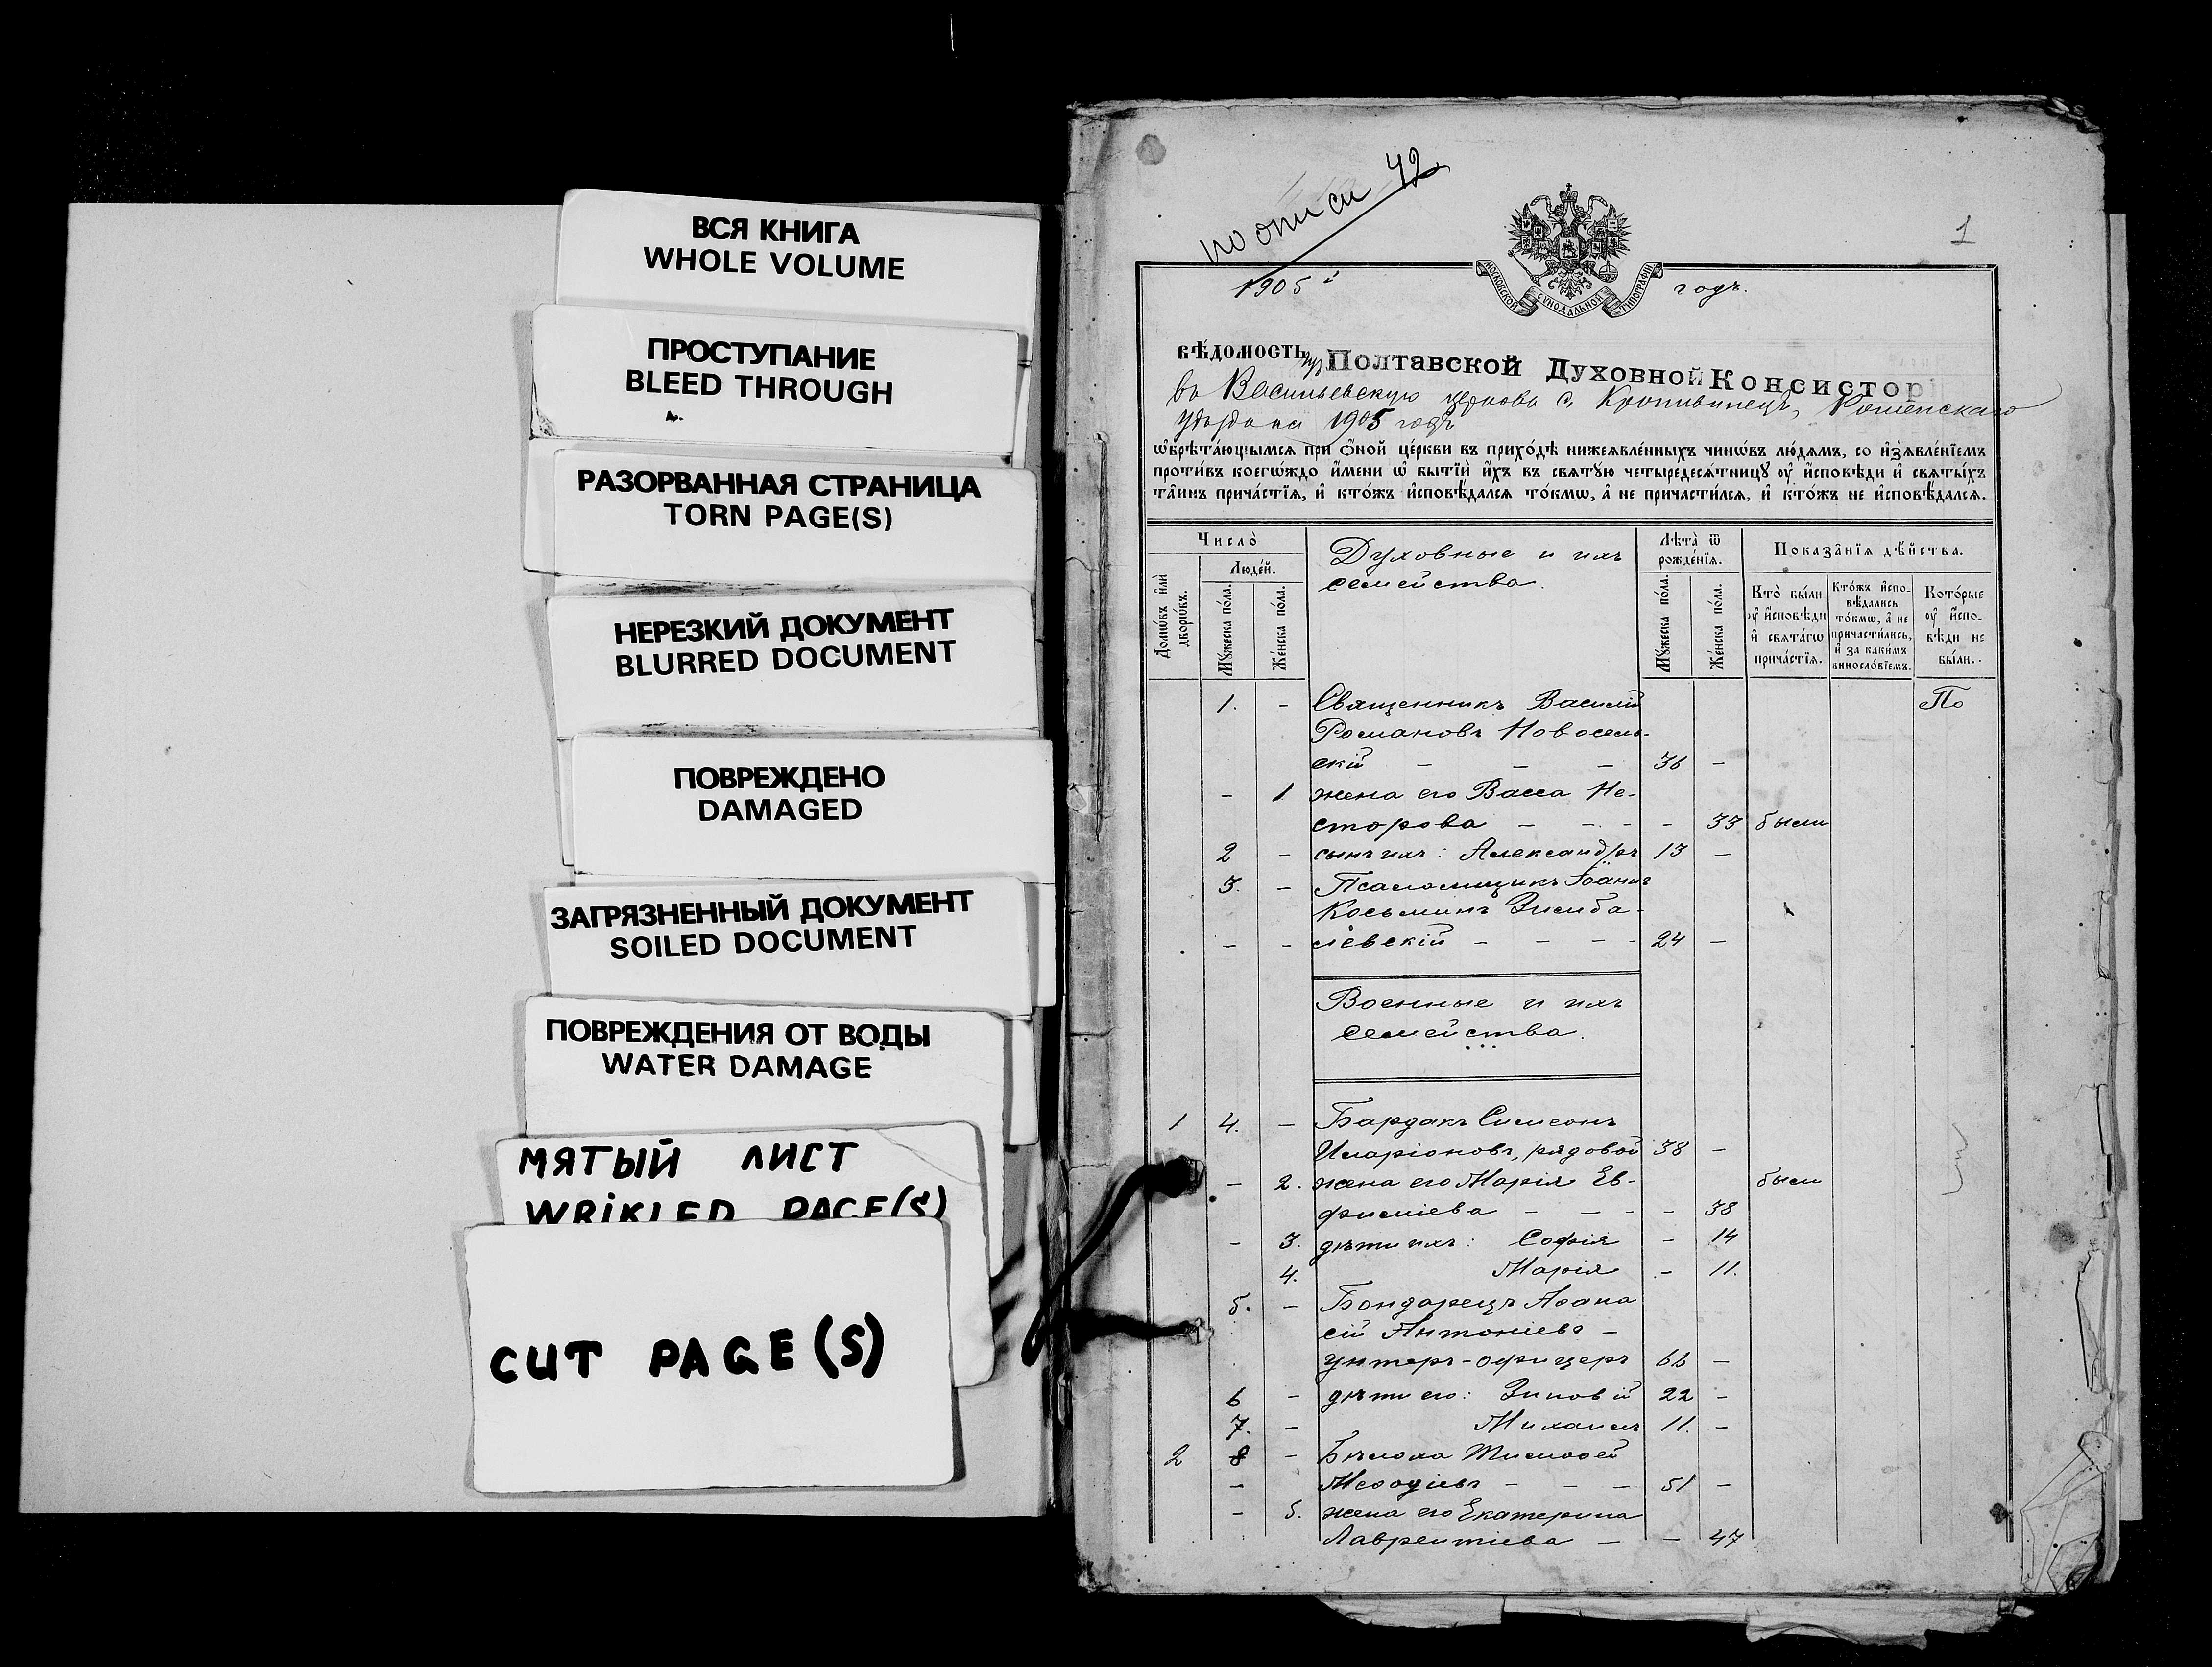 ВСЯ КНИГА
WHOLE VOLUME
ПРОСТУПАНИЕ
BLEED THROUGH
РАЗОРВАННАЯ СТРАНИЦА
TORN PAGE(S)
НЕРЕЗКИЙ ДОКУМЕНТ
BLURRED DOCUMENT
ПОВРЕЖДЕНО
DAMAGED
ЗАГРЯЗНЕННЫЙ ДОКУМЕНТ
SOILED DOCUMENT
ПОВРЕЖДЕНИЯ ОТ ВОДЫ
WATER DAMAGE
МЯТЫЙ ЛИСТ
WRiKLED PAGE(S)
CUT PAGE(S)
по описи 42
1
1905й годъ.
МОСКОВСКОЙ СѴНОДАЛЬНОЙ ТИПОГРАФІИ
вѣ́домость Полтавской Духовной Консистор
въ Васильевскую церковь с. Кропивинецъ, Роменскаго
уѣзда на 1905 годъ
ѡ҆брѣта́ющымсѧ при ѻ҆́ной це́ркви въ прихо́дѣ нижеꙗвле́нныхъ чинѡ́въ лю́демъ, со и҆з̾ѧвле́нїемъ
проти́въ коегѡ́ждо и҆́мени ѡ҆ бытїѝ и҆́хъ въ свѧтꙋ́ю четыредесѧ́тницꙋ ᲂу҆ и҆́сповѣди и҆ свѧты́хъ
та̑инъ прича́стїѧ, и҆ кто́жъ и҆сповѣ́далсѧ то́кмѡ, а҆ не причасти́лсѧ, и҆ кто́жъ не и҆сповѣ́далсѧ.
Число̀
Домѡ́въ и҆лѝ дворѡ́въ.
Люде́й.
Мꙋ́жеска по́ла.
Же́нска по́ла.
Духовные и ихъ
семейства.
Лѣ́та ѿ рожде́нїѧ.
Мꙋ́жеска по́ла.
Же́нска по́ла.
Показа̑нїѧ дѣ́йства.
Кто̀ бы́ли ᲂу҆ и҆́сповѣди и҆ свѧта́гѡ прича́стїѧ.
Кто́жъ и҆сповѣ́дались то́кмѡ, а҆ не причасти́лись, и҆ за каки́мъ виносло́вїемъ.
Кото́рые ᲂу҆ и҆́сповѣди не бы́ли.
1. - Священникъ Василій По
Романовъ Новосель-
скій - - - 36 -
- 1 жена его Васса Не-
сторова - - - - 33 были
2 - сынъ ихъ: Александръ 13 -
3. - Псаломщикъ Іоаннъ
Косьминъ Зимба-
- - левскій - - - - 24 -
Военные и ихъ
семейства.
1 4. - Бардакъ Симеонъ
Иларіоновъ, рядовой 38 -
- 2. жена его Марія Ев- были
фиміева - - - - 38
- 3. дѣти ихъ: Софія - 14
4. Марія - 11.
5. - Бондарецъ Аѳана
сій Антоніевъ -
унтеръ-офицеръ 66 -
6 - дѣти его: Зиновій 22 -
7. - Михаилъ 11. -
2 8 - Бѣлоха Тимоѳей
- Меѳодіевъ - - - 51 -
- 5. жена его Екатерина
Лаврентіева - - 47